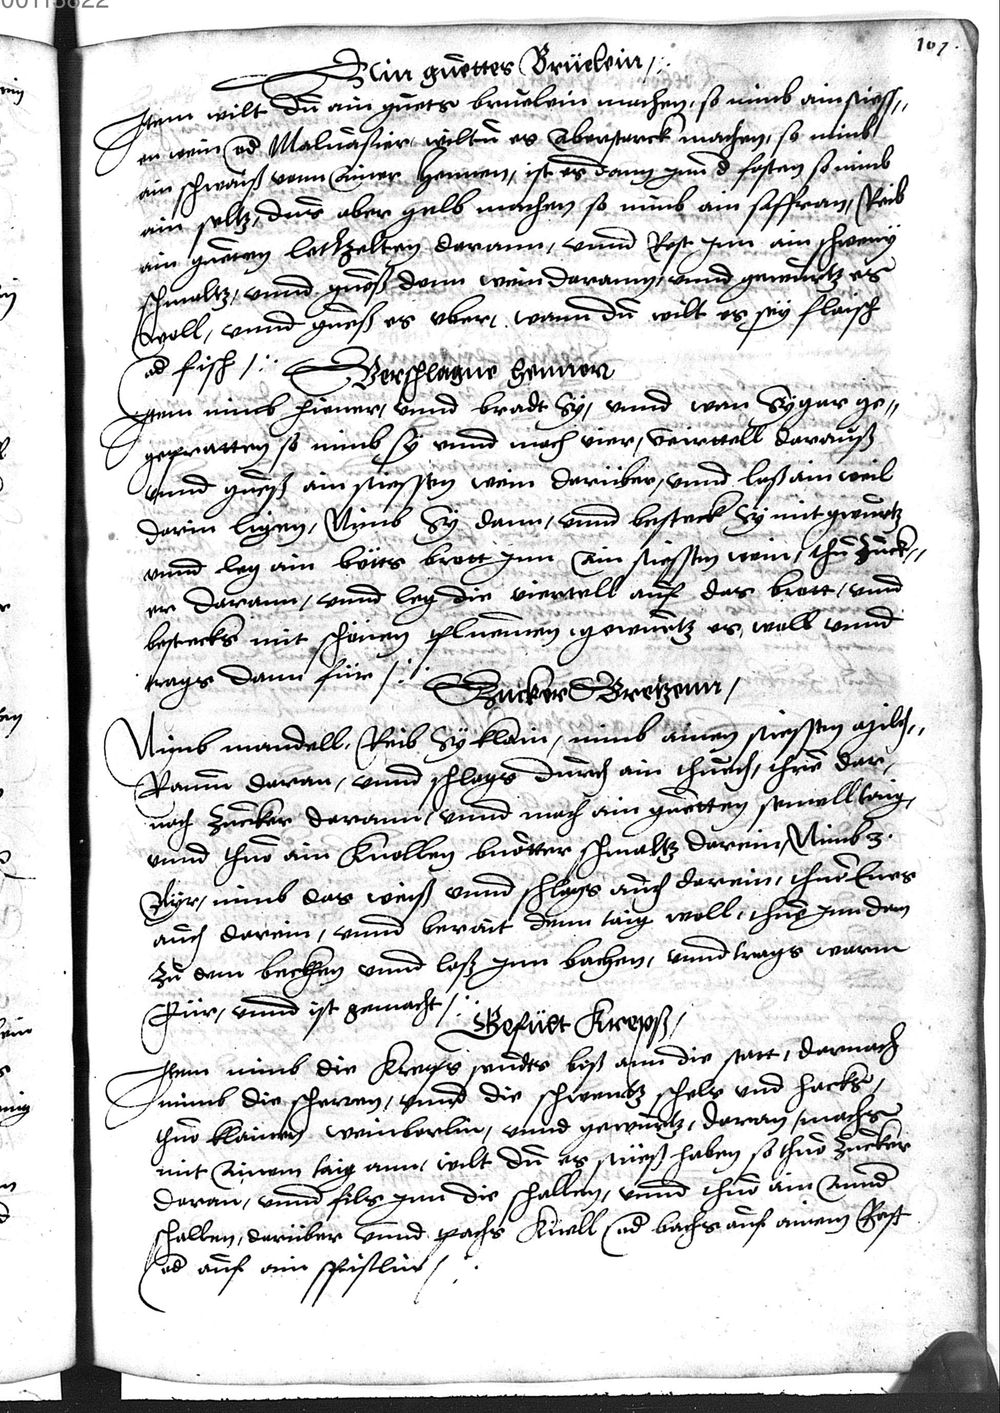 107.
Ain guettes Brüelein /.
Item wilt du ain guets brüelein machen, so nimb ain siess„
en wein od Maluasier, wiltu es aber sterck machen, so nimb
ain schwaiß vonn ainer Hennen, ist es dann jnn d fasten so nimb
ain seltz, dus aber gelb machen so nimb ain saffran, Reib
ain guetten lethzelten darann, vnnd Röst jnn ain schweny
schmaltz, vnnd gueß denn wein darann, vnnd gewürtz es
woll, vnnd gueß es vber, wann du wilt es sey flaisch
od fisch /.
Verschlagne hennen
Item nimb hiener, vnnd bradt Sy, vnnd wan Sy gar ge„
gepratten so nimb sy vnnd mach vier, Veirttell darauß
vnnd gueß ain siessen wein darüber, vnnd laß ain weil
darin ligen, Nimb Sy dann, vnnd besteck Sy mit gwürtz
vnnd leg ain bötts brott jnn ain siessen wein, thu Zuck„
er darann, vnnd leg die viertell auf das brott, vnnd
bestecks mit schönen pluemen, gewürtz es woll vnnd
trags dann für /.
Zucker Bretzenn /
Nimb mandell, Reib Sy klain, nimb ainen siessen milch„
Ramm daran, vnnd schlags durch ain thuech, thue dar„
nach Zucker darann, vnnd mach ain guetten semell taig,
vnnd thuo ain Knollen buotter schmaltz darein, Nimb 3.
Ayr, nimb das weiß vnnd schlags auch darein, thuo
auch darein, vnnd berait denn taig woll, thue jnn dan
Zu dem beckhen vnnd laß jnn bachen, vnnd trags warm
Für, vnnd ist gemacht /.
Gefült Krepß /
Item nimb die Kreps seudts baß ann die statt, darnach
nimb die scherren, vnnd die schwentz schels vnd hacks,
thuo klainen weinberlin, vnnd gewürtz, daran, machs
mit ainem taig ann, wilt du es süeß haben so thuo Zucker
daran, vnnd fils jnn die schallen, vnnd thuo ain annd
schallen, darüber vnnd pachs Küell od bachs auf ainem Rost
od auf ain spislin /.